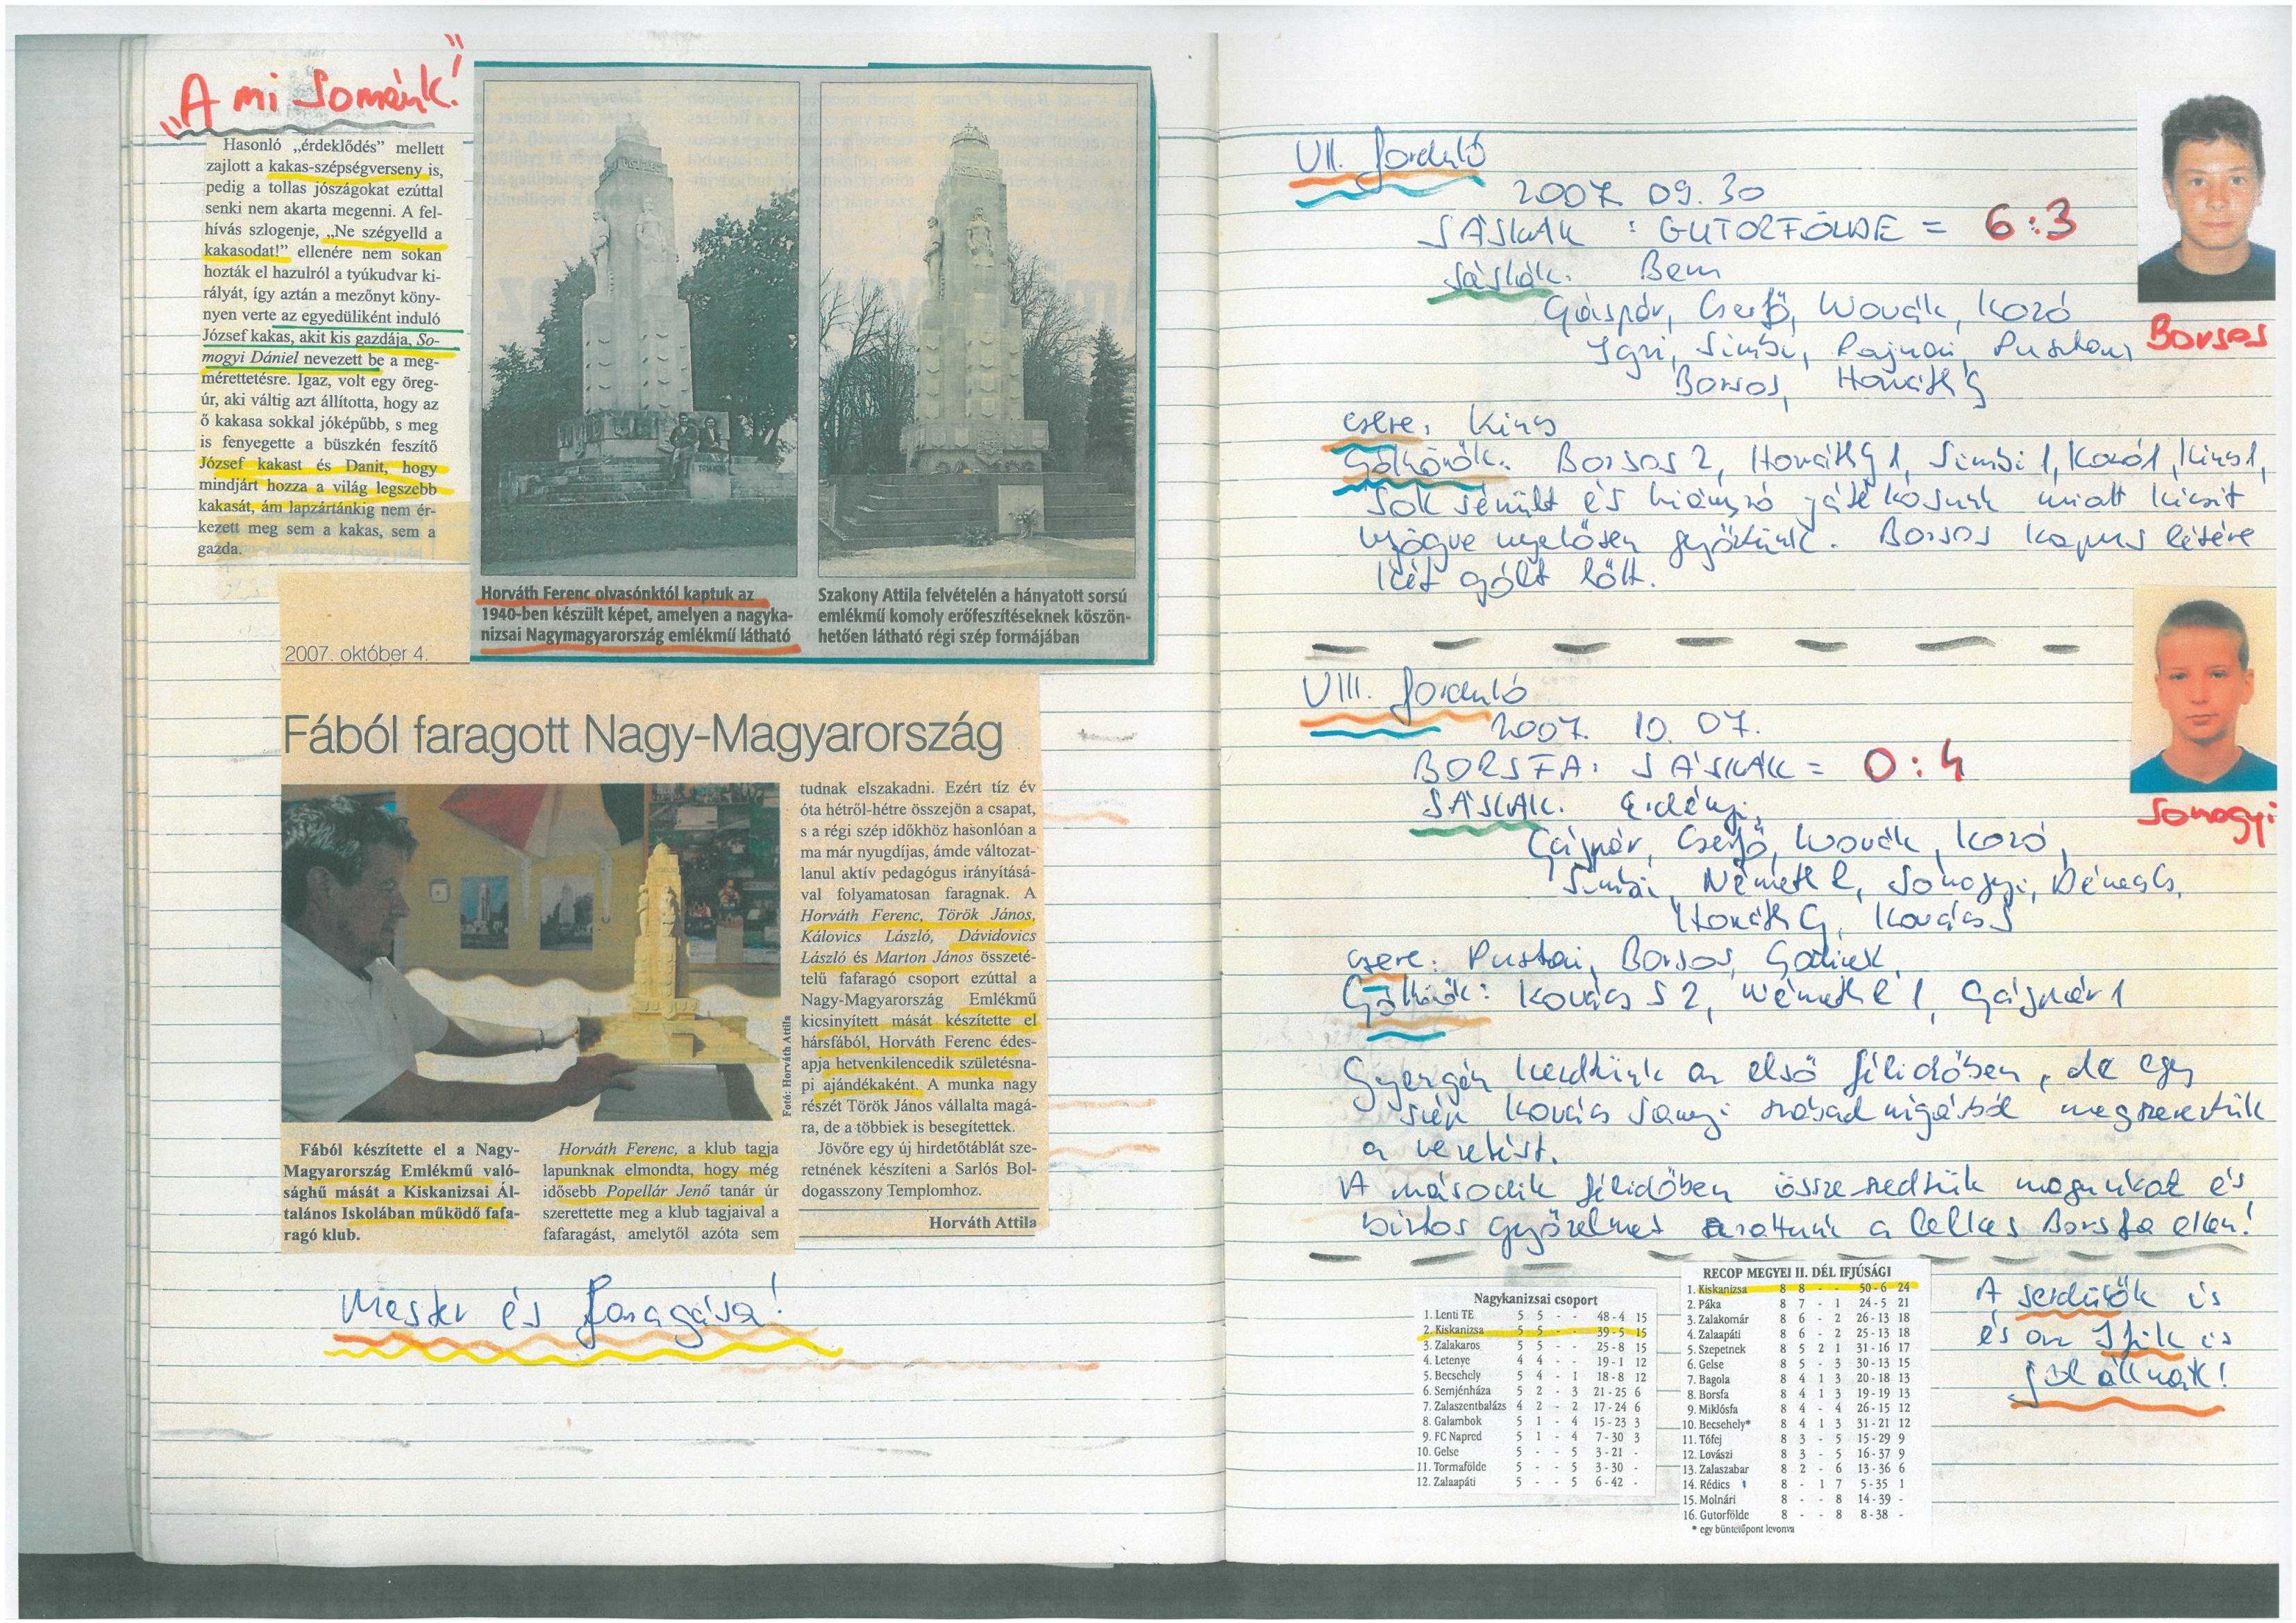 „A mi Sománk!”
Hasonló „érdeklődés” mellett
zajlott a kakas-szépségverseny is,
pedig a tollas jószágokat ezúttal
senki nem akarta megenni. A fel-
hívás szlogenje, „Ne szégyelld a
kakasodat!” ellenére nem sokan
hozták el hazulról a tyúkudvar ki-
rályát, így aztán a mezőnyt köny-
nyen verte az egyedüliként induló
József kakas, akit kis gazdája, So-
mogyi Dániel nevezett be a meg-
mérettetésre. Igaz, volt egy öreg-
úr, aki váltig azt állította, hogy az
ő kakasa sokkal jóképűbb, s meg
is fenyegette a büszkén feszítő
József kakast és Danit, hogy
mindjárt hozza a világ legszebb
kakasát, ám lapzártánkig nem ér-
kezett meg sem a kakas, sem a
gazda.
Horváth Ferenc olvasónktól kaptuk az
1940-ben készült képet, amelyen a nagyka-
nizsai Nagymagyarország emlékmű látható
Szakony Attila felvételén a hányatott sorsú
emlékmű komoly erőfeszítéseknek köszön-
hetően látható régi szép formájában
2007. október 4.
Fából faragott Nagy-Magyarország
Fotó: Horváth Attila
Fából készítette el a Nagy-
Magyarország Emlékmű való-
sághű mását a Kiskanizsai Ál-
talános Iskolában működő fafa-
ragó klub.
Horváth Ferenc, a klub tagja
lapunknak elmondta, hogy még
idősebb Popellár Jenő tanár úr
szerettette meg a klub tagjaival a
fafaragást, amelytől azóta sem
tudnak elszakadni. Ezért tíz év
óta hétről-hétre összejön a csapat,
s a régi szép időkhöz hasonlóan a
ma már nyugdíjas, ámde változat-
lanul aktív pedagógus irányításá-
val folyamatosan faragnak. A
Horváth Ferenc, Török János,
Kálovics László, Dávidovics
László és Marton János összeté-
telű fafaragó csoport ezúttal a
Nagy-Magyarország Emlékmű
kicsinyített mását készítette el
hársfából, Horváth Ferenc édes-
apja hetvenkilencedik születésna-
pi ajándékaként. A munka nagy
részét Török János vállalta magá-
ra, de a többiek is besegítettek.
Jövőre egy új hirdetőtáblát sze-
retnének készíteni a Sarlós Bol-
dogasszony Templomhoz.
Horváth Attila
Mester és faragása!
VII. forduló
2007. 09. 30
SÁSKÁK : GUTORFÖLDE = 6:3
Sáskák: Bem
Gáspár, Cserfő, Novák, Kozó
Igri, Simbi, Pajnai, Pusztai,
Borsos, Horváth G
Borsos
csere: Kiss
Gólkirók: Borsos 2, Horváth G 1, Simbi 1, Kozó 1,
Sok sérült és hiányzó játékosunk miatt kicsit
nyögve nyelősen győztünk. Borsos kapus létére
két gólt lőtt.
VIII. forduló
2007. 10. 07.
BORSFA: SÁSKÁK = 0:4
SÁSKÁK: Erdényi,
Gáspár, Cserfő, Novák, Kozó,
Simbi, Németh, Somogyi, Dénes,
Horváth G, Kovács S
Somogyi
csere: Pusztai, Borsos,
Kovács S 2, Németh 1, Gáspár 1
Gyengén kezdtünk az első félidőben, de egy
szép Kovács Samyi szabadrúgásból megszereztük
a vezetést.
A második félidőben összeszedtük magunkat és
biztos győzelmet arattunk a lelkes Borsfa ellen!
Nagykanizsai csoport
1. Lenti TE 5 5 - - 48-4 15
2. Kiskanizsa 5 5 - - 39-5 15
3. Zalakaros 5 5 - - 25-8 15
4. Letenye 4 4 - - 19-1 12
5. Becsehely 5 4 - 1 18-8 12
6. Semjénháza 5 2 - 3 21-25 6
7. Zalaszentbalázs 4 2 - 2 17-24 6
8. Galambok 5 1 - 4 15-23 3
9. FC Napred 5 1 - 4 7-30 3
10. Gelse 5 - - 5 3-21 -
11. Tormafölde 5 - - 5 3-30 -
12. Zalaapáti 5 - - 5 6-42 -
RECOP MEGYEI II. DÉL IFJÚSÁGI
1. Kiskanizsa 8 8 - - 50-6 24
2. Páka 8 7 - 1 24-5 21
3. Zalakomár 8 6 - 2 26-13 18
4. Zalaapáti 8 6 - 2 25-13 18
5. Szepetnek 8 5 2 1 31-16 17
6. Gelse 8 5 - 3 30-13 15
7. Bagola 8 4 1 3 20-18 13
8. Borsfa 8 4 1 3 19-19 13
9. Miklósfa 8 4 - 4 26-15 12
10. Becsehely* 8 4 1 3 31-21 12
11. Tófej 8 3 - 5 15-29 9
12. Lovászi 8 3 - 5 16-37 9
13. Zalaszabar 8 2 - 6 13-36 6
14. Rédics 8 - 1 7 5-35 1
15. Molnári 8 - - 8 14-39 -
16. Gutorfölde 8 - - 8 8-38 -
* egy büntetőpont levonva
A serdülők is
és az Ifik is
jól állnak!